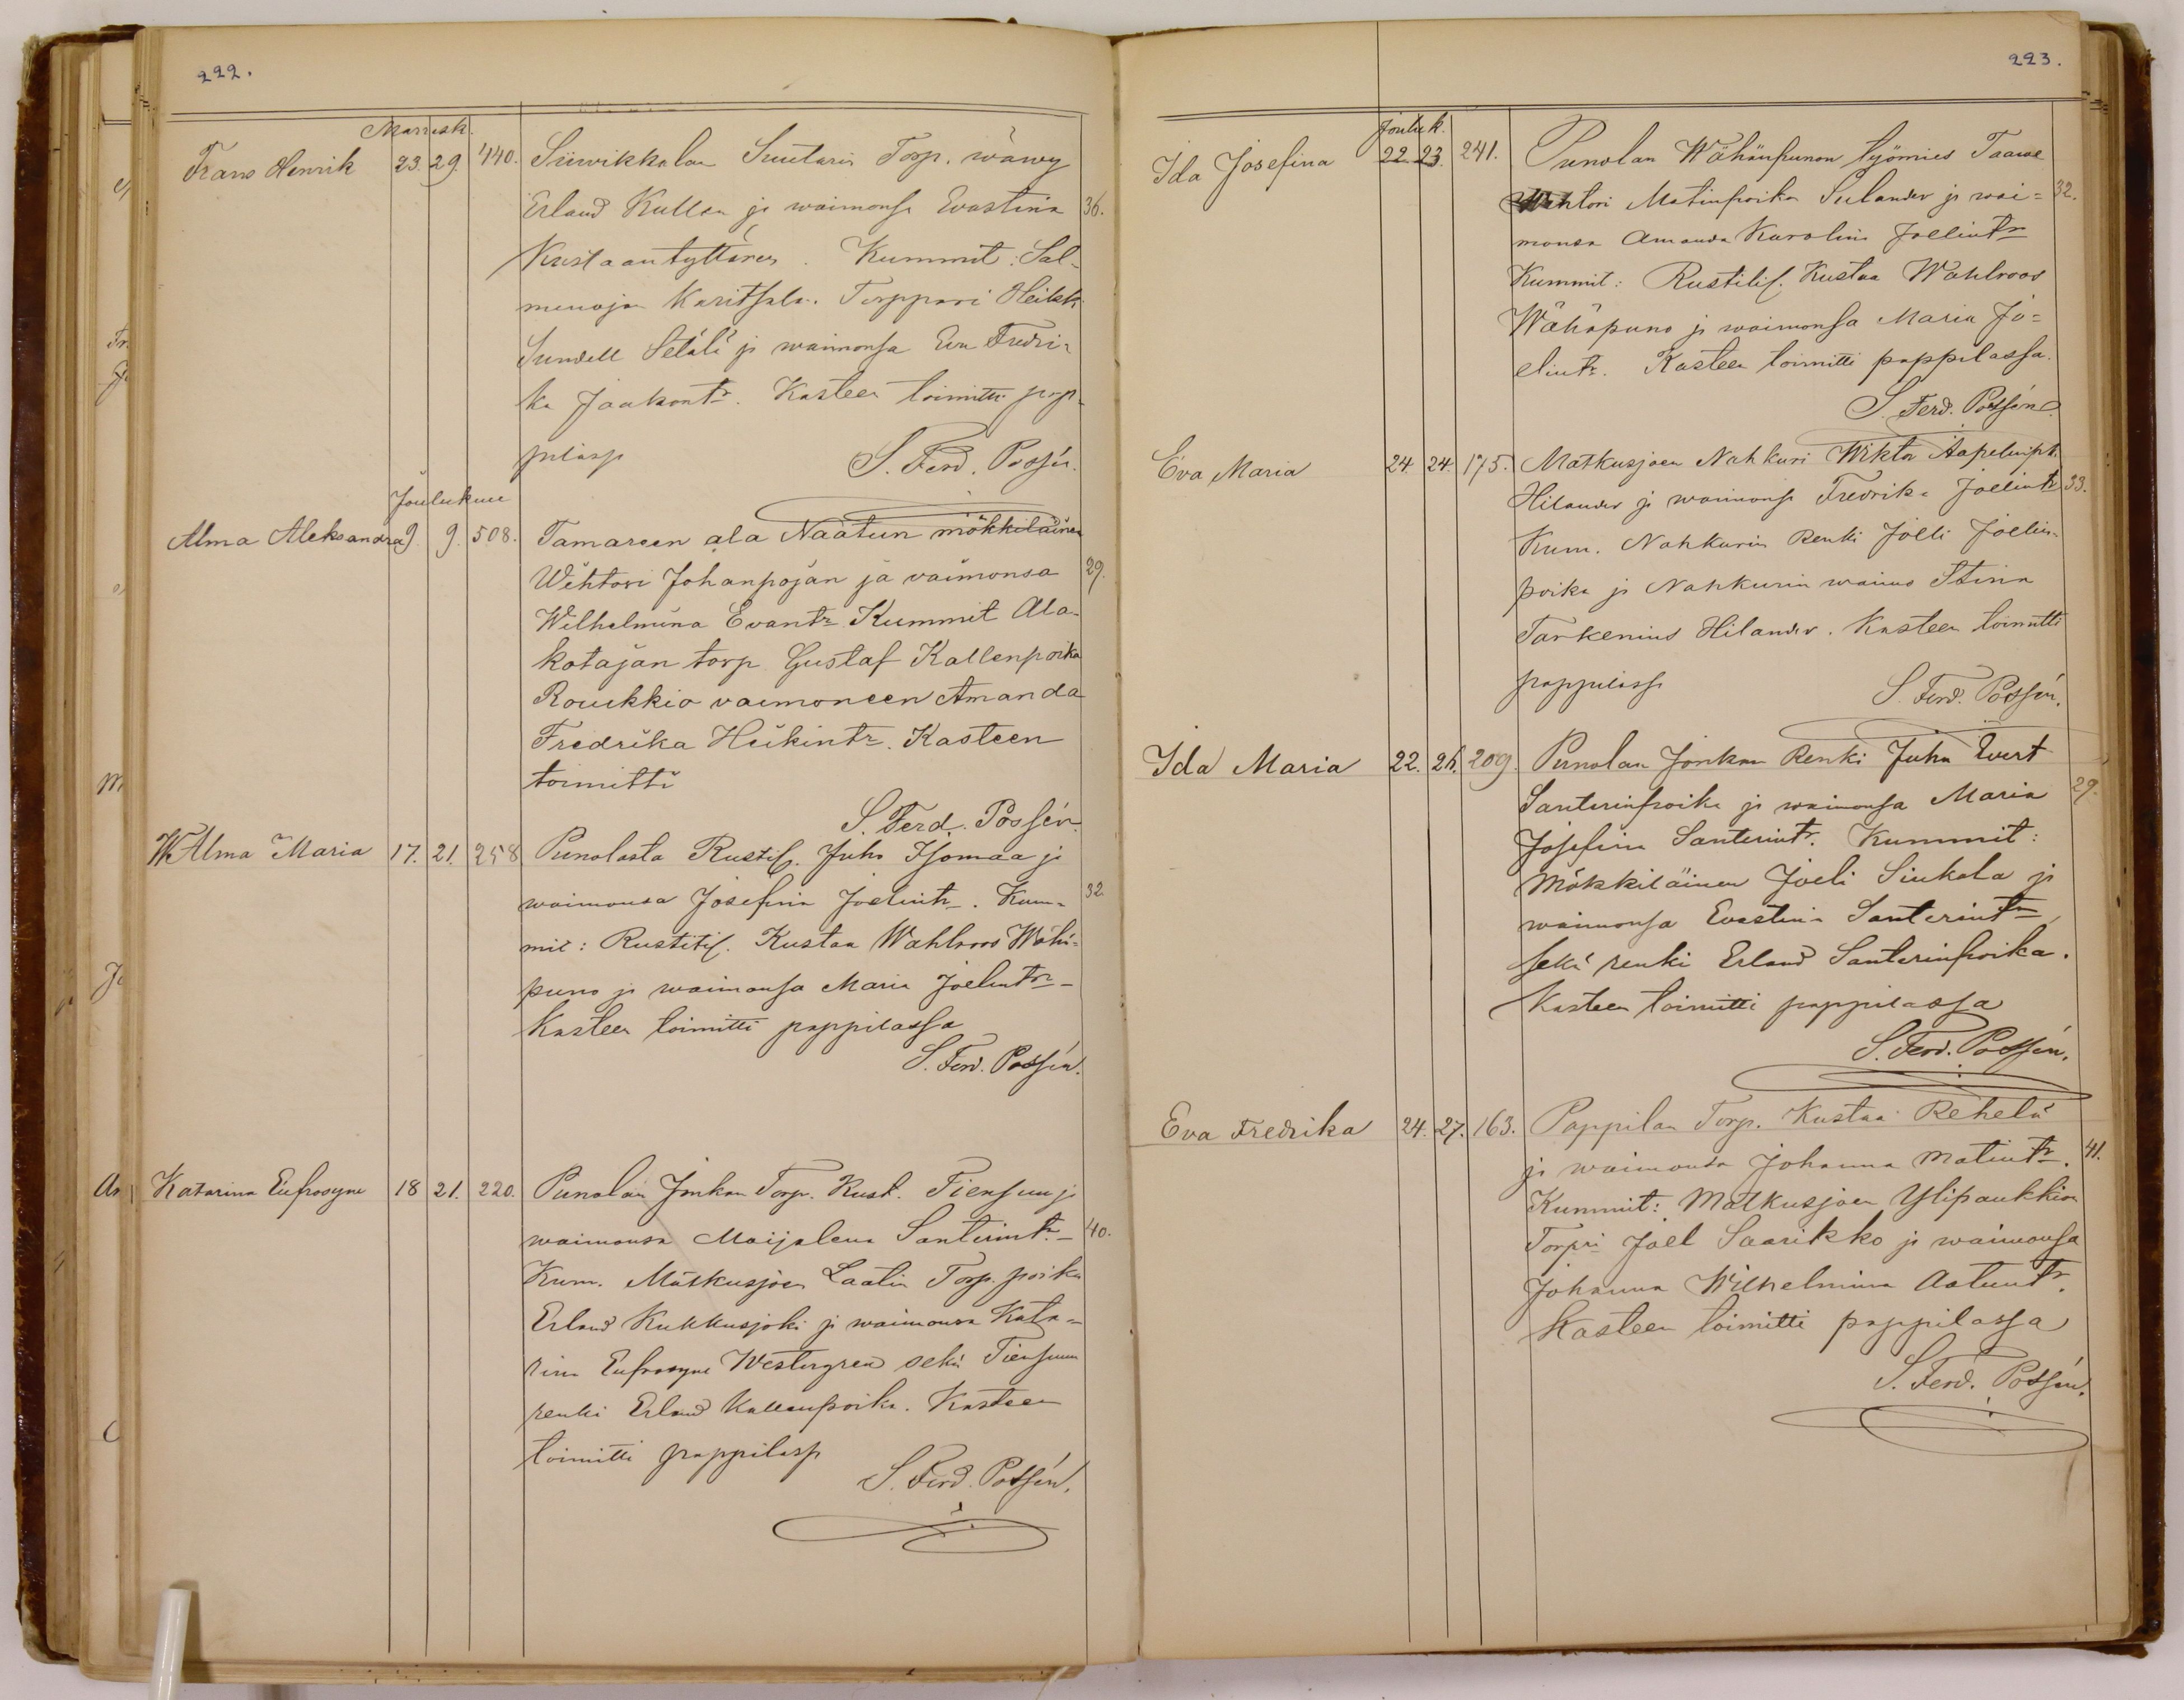 222.
Marrask.
Frans Henrik 23. 29. 440. Siiwikkalan Suutarin Torp. wäwy
Erland Kullan ja waimonsa Evastina 36.
Kustaantyttären. Kummit: Sal-
menojan Karitsala. Torppari Heikk.
Sundell Setälä ja waimonsa Eva Fredri-
ka Jaakontr. Kasteen toimitti pap-
pilassa S. Ferd. Possén.
Joulukuu
Alma Aleksandra 9. 9. 508. Tamareen ala Näätun mökkiläinen
Wihtori Johanpojan ja vaimonsa 29.
Wilhelmiina Evantr. Kummit Ala-
kotajan torp. Gustaf Kallenpoika
Roukkio vaimoneen Amanda
Fredrika Heikintr. Kasteen
toimitti
S. Ferd. Possén.
Alma Maria 17. 21. 258 Punolasta Rustit. Juho Isomaa ja
waimonsa Josefina Joelintr. Kum- 32
mit: Rustitil. Kustaa Wahlroos Wähä-
puno ja waimonsa Maria Joelintr-
Kasteen toimitti pappilassa
S. Ferd. Possén.
Katarina Eufrosyne 18 21. 220. Punolan Jonkan Torp. Kust. Tiensuu ja
waimonsa Maijalena Santerintr.- 40.
Kum. Mätkusjoen Laatin Torp. poika
Erland Kukkusjoki ja waimonsa Kata-
rina Eufrosyne Westergren sekä Tiensuun
renki Erland Kallenpoika. Kasteen
toimitti pappilassa
S. Ferd. Possén.
223.
Jouluk.
Ida Josefina 22. 23. 241. Punolan Wähänpunon työmies Taawe
Wihtori Matinpoika Sulander ja wai- 32.
monsa Amanda Karolina Joelintr
Kummit: Rustitil. Kustaa Wahlroos
Wähäpuno ja waimonsa Maria Jo-
elintr. Kasteen toimitti pappilassa.
S. Ferd. Possén.
Eva Maria 24. 24. 175. Mätkusjoen Nahkuri Wiktor Aapelinp.
Hilander ja waimonsa Fredrika Joelintr 33.
Kum. Nahkurin Renki Joeli Joelin-
poika ja Nahkurin waimo Stina
Tarkenius Hilander. Kasteen toimitti
pappilassa S. Ferd. Possén.
Ida Maria 22. 26. 209. Punolan Jonkan Renki Juha Evert
Santerinpoika ja waimonsa Maria 29.
Josefina Santerintr. Kummit:
Mökkiläinen Joeli Siukola ja
waimonsa Evastina Santerintr
sekä renki Erland Santerinpoika.
Kasteen toimitti pappilassa
S. Ferd. Possén.
Eva Fredrika 24. 27. 163. Pappilan Torp. Kustaa Rehelä
ja waimonsa Johanna Matintr. 41.
Kummit: Mätkusjoen Ylipaukkion
Torpri Joel Saarikko ja waimonsa
Johanna Wilhelmina Aatuntr.
Kasteen toimitti pappilassa
S. Ferd. Possén.